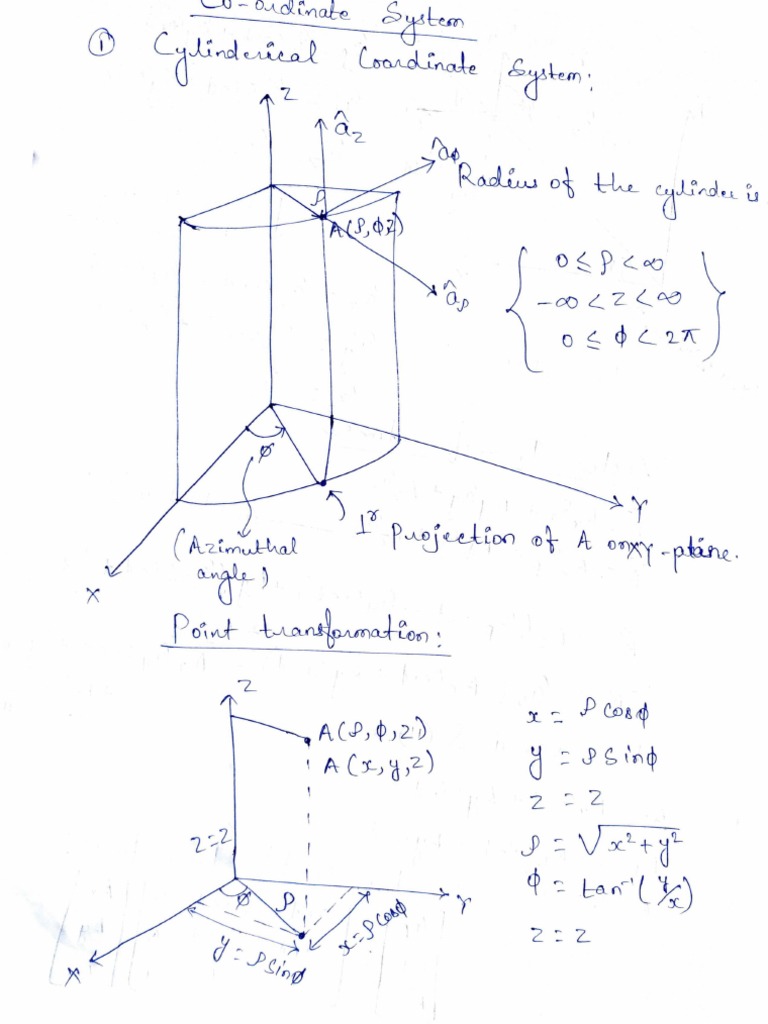 Co-ordinate System
① Cylinderical Coordinate System:
Z
â_z
â_ϕ
Radius of the cylinder is
ρ
A(ρ,ϕ,z)
â_ρ
0 ≤ ρ < ∞
-∞ < z < ∞
0 ≤ ϕ < 2π
ϕ
Y
X
(Azimuthal
angle)
⊥ʳ Projection of A on xy-plane.
Point transformation:
Z
A(ρ,ϕ,z)
A(x,y,z)
z=z
ϕ
ρ
Y
X
y=ρsinϕ
x=ρcosϕ
x = ρcosϕ
y = ρsinϕ
z = z
ρ = √x²+y²
ϕ = tan⁻¹(y/x)
z=z